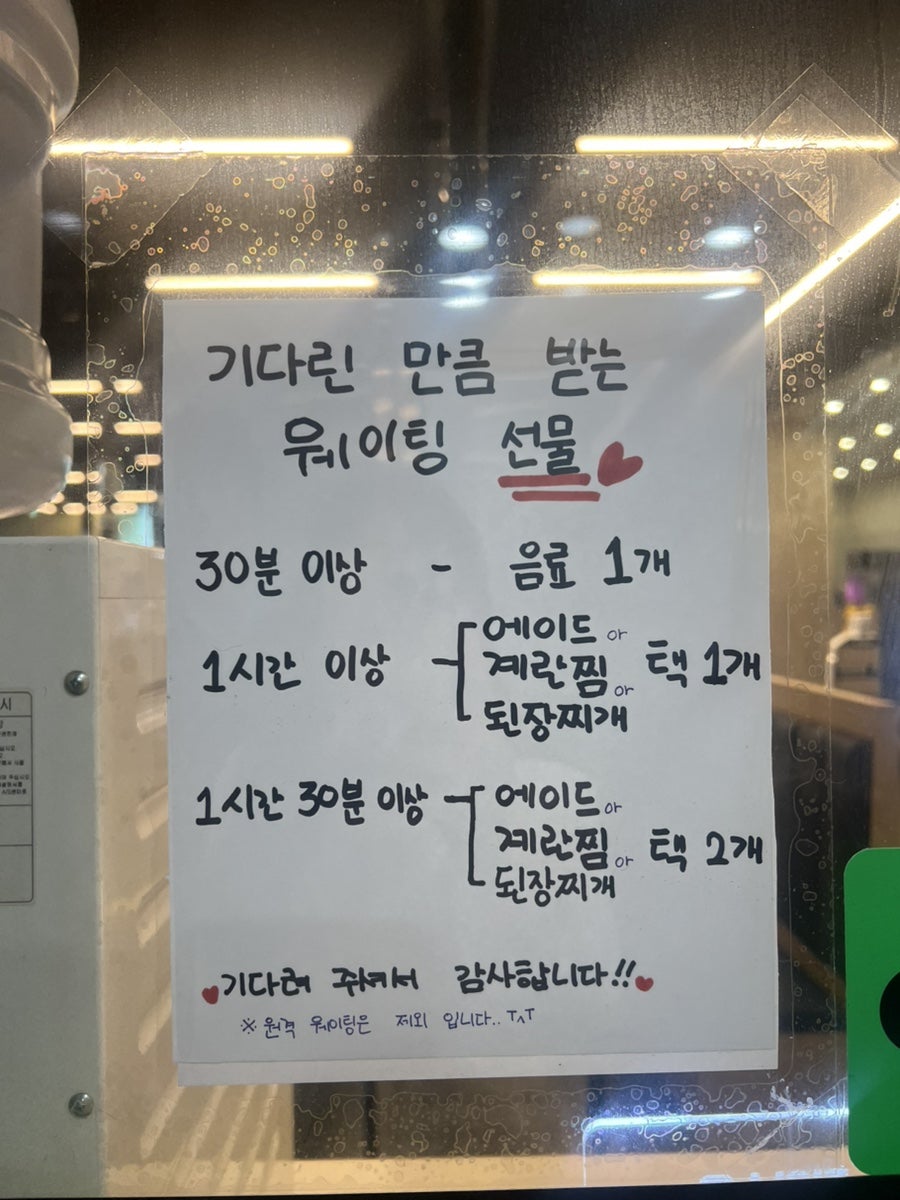 기다린 만큼 받는
웨이팅 선물
30분 이상 - 음료 1개
1시간 이상 에이드 or
계란찜 or 택 1개
된장찌개
1시간 30분 이상 에이드 or
계란찜 or 택 2개
된장찌개
기다려 주셔서 감사합니다!!
※ 원격 웨이팅은 제외 입니다.. T^T